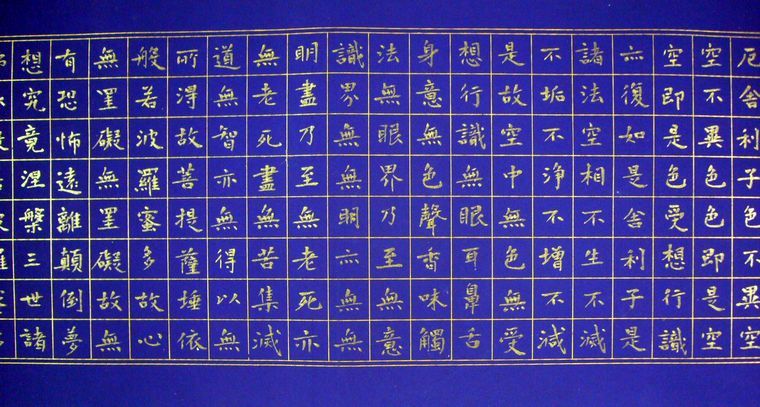 厄舍利子色不異空
空不異色色即是空
空即是色受想行識
亦復如是舍利子是
諸法空相不生不滅
不垢不淨不增不減
是故空中無色無受
想行識無眼耳鼻舌
身意無色聲香味觸
法無眼界乃至無意
識界無無明亦無無
明盡乃至無老死亦
無老死盡無苦集滅
道無智亦無得以無
所得故菩提薩埵依
般若波羅蜜多故心
無罣礙無罣礙故無
有恐怖遠離顛倒夢
想究竟涅槃三世諸